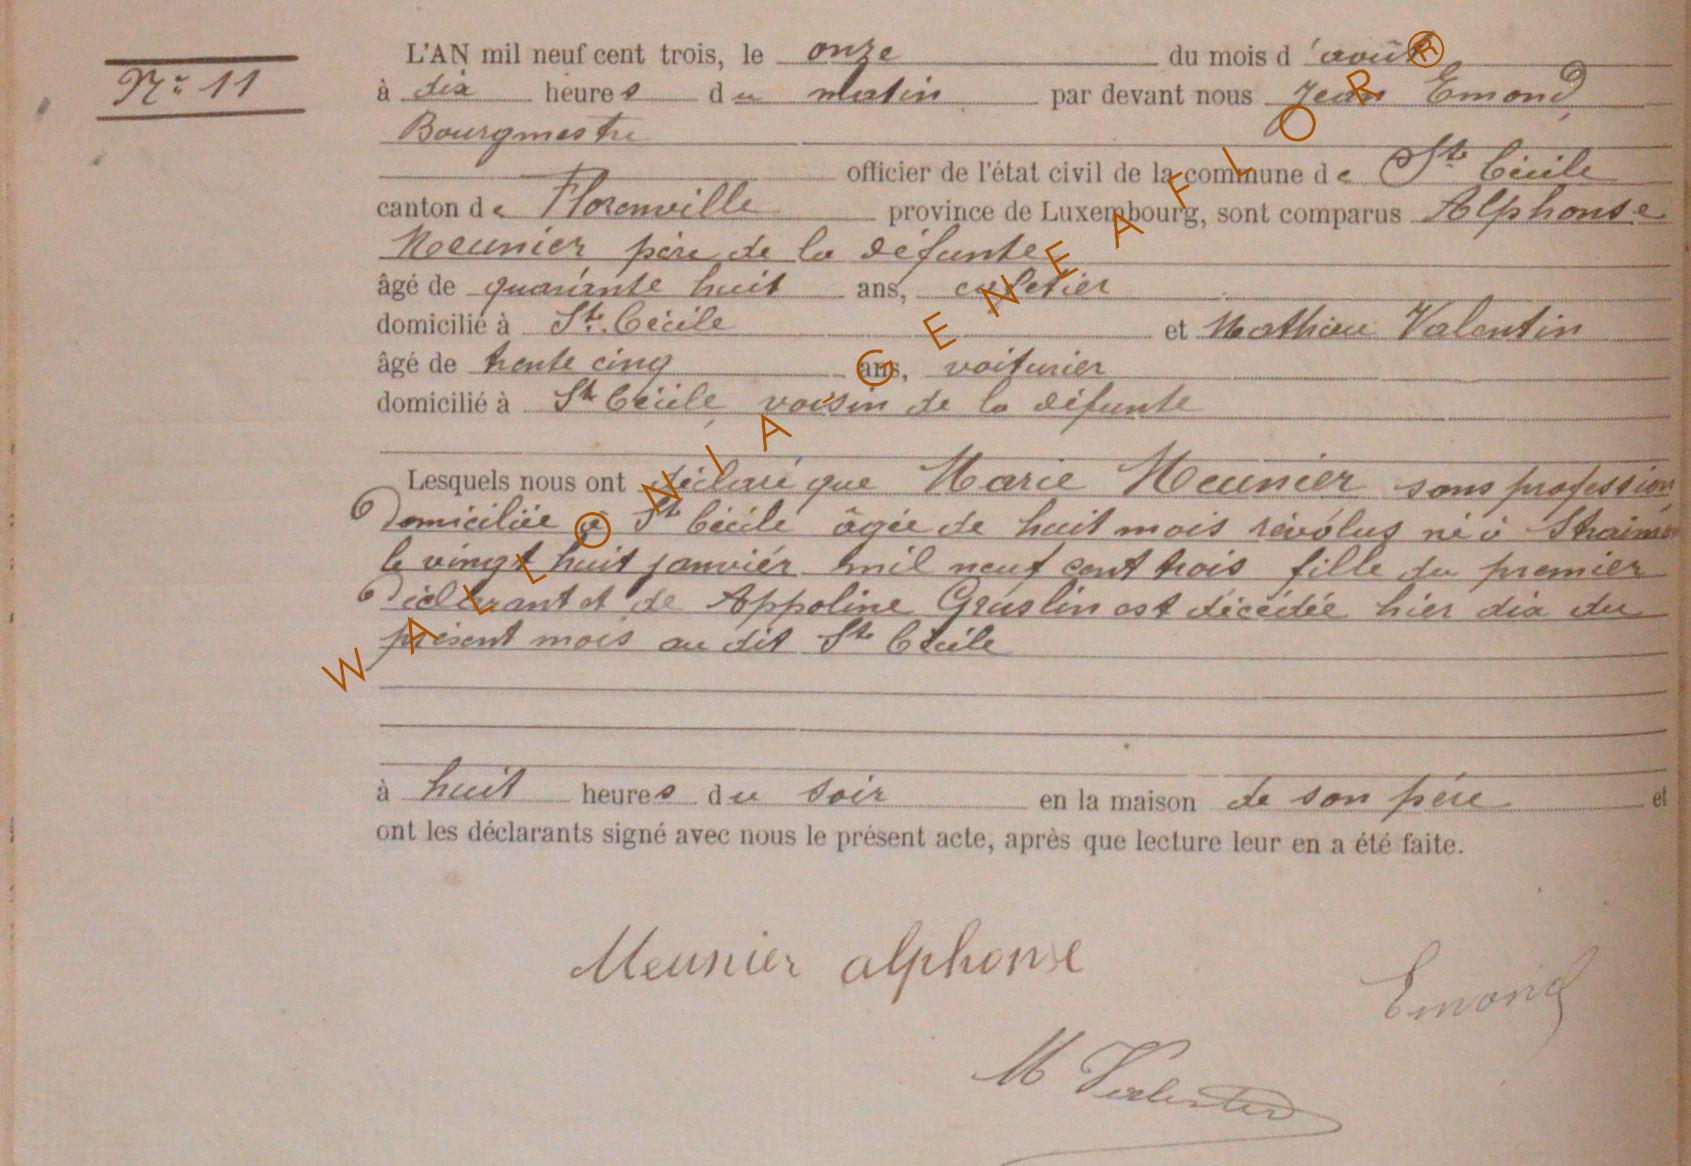 L'AN mil neuf cent trois, le onze du mois d 'août
Nº 11
à dix heures du matin par devant nous Jean Emond,
Bourgmestre
officier de l'état civil de la commune de Ste Cécile
canton de Florenville province de Luxembourg, sont comparus Alphonse
Meunier père de la défunte
âgé de quarante huit ans,
domicilié à Ste Cécile et Mathieu Valentin
âgé de trente cinq ans, voiturier
domicilié à Ste Cécile, voisin de la défunte
Lesquels nous ont déclaré que Marie Meunier sans profession
domiciliée à Ste Cécile âgée de huit mois révolus né à Straimont
le vingt huit janvier mil neuf cent trois fille du premier
déclarant et de Appoline Gruslin est décédée hier dix du
présent mois au dit Ste Cécile
à huit heures du soir en la maison de son père et
ont les déclarants signé avec nous le présent acte, après que lecture leur en a été faite.
Meunier alphonse
Emond
M Valentin
WALLONIA GENEAFLOR ®